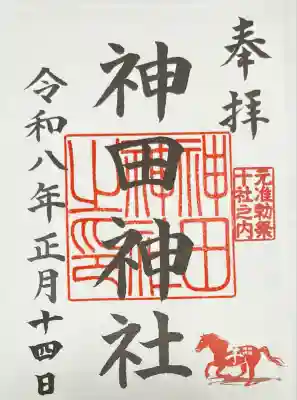 奉拝
元准勅祭
十社之内
神田神社
神田
神社
之印
神
令和八年正月十四日